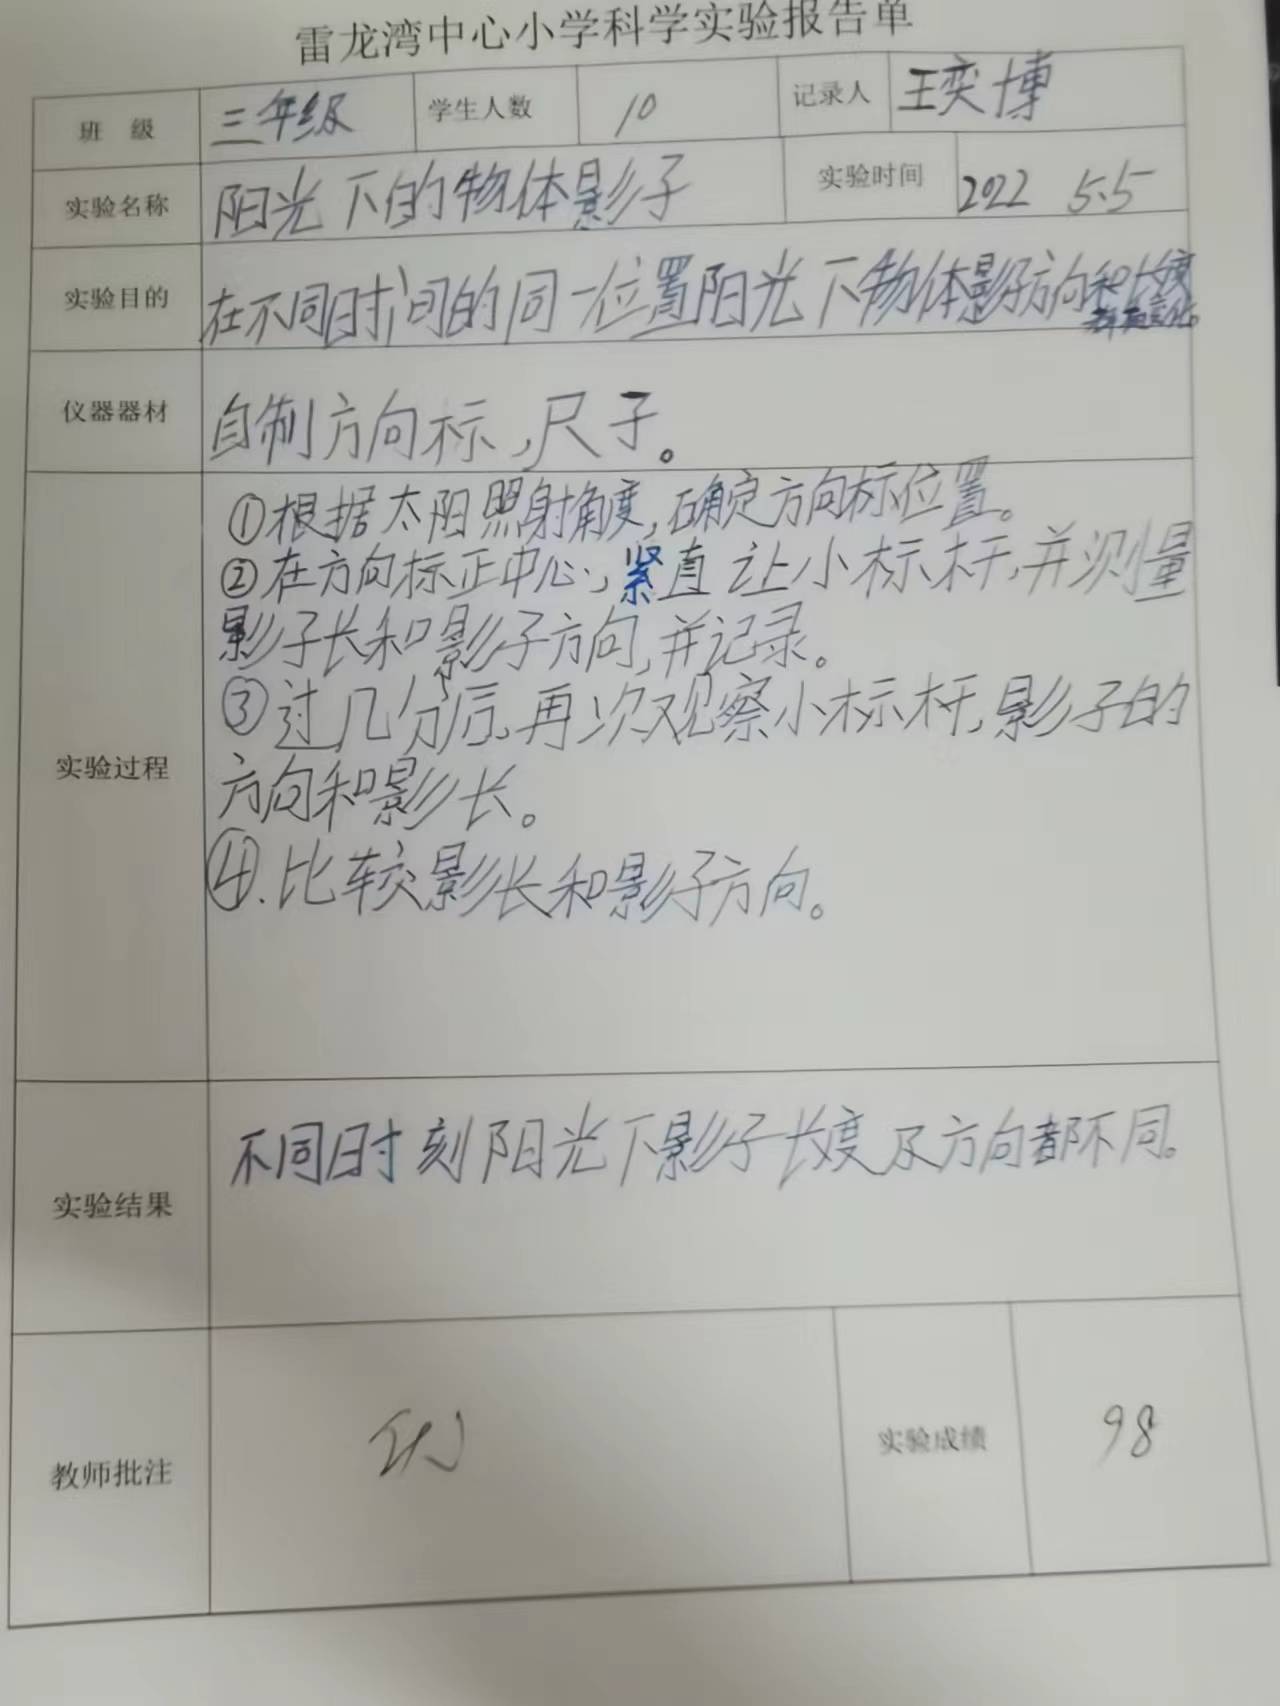 雷龙湾中心小学科学实验报告单
班 级 三年级 学生人数 10 记录人 王奕博
实验名称 阳光下的物体影子 实验时间 2022 5.5
实验目的 在不同时间的同一位置阳光下物体影子方向和长度
仪器器材 自制方向标,尺子。
①根据太阳照射角度,确定方向标位置。
②在方向标正中心,紧直让小标杆,并测量
影子长和影子方向,并记录。
③过几分后,再次观察小标杆,影子的
实验过程
方向和影长。
④.比较影长和影子方向。
不同时刻阳光下影子长度及方向都不同。
实验结果
教师批注 实验成绩 98